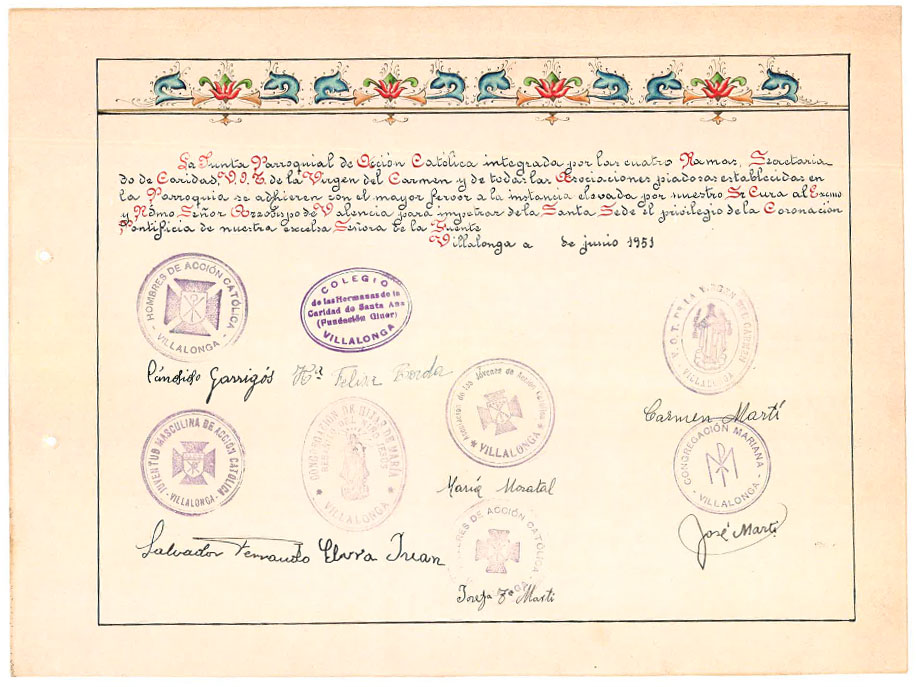 La Junta Parroquial de Acción Católica integrada por las cuatro Ramas, Secretaria
do de Caridad, V.O.T. de la Virgen del Carmen y de todas las Asociaciones piadosas establecidas en
la Parroquia se adhieren con el mayor fervor a la instancia elevada por nuestro Sr Cura al Excmo
y Rdmo Señor Arzobispo de Valencia para impetrar de la Santa Sede el privilegio de la Coronación
Pontificia de nuestra excelsa Señora de la Fuente
Villalonga a de junio 1951
HOMBRES DE ACCIÓN CATÓLICA
- VILLALONGA -
COLEGIO
de las Hermanas de la
Caridad de Santa Ana
(Fundación Giner)
VILLALONGA
V. O. T. DE LA VIRGEN DEL CARMEN
VILLALONGA
Cándido Garrigós
Hª Felisa
Carmen Martí
JUVENTUD MASCULINA DE ACCIÓN CATÓLICA
- VILLALONGA -
CONGREGACIÓN DE HIJAS DE MARÍA
VILLALONGA
de las Jóvenes de Acción Católica
* VILLALONGA *
CONGREGACIÓN MARIANA
- VILLALONGA -
María Moratal
José Martí
Salvador Fernando
Elvira Juan
DE ACCIÓN CATÓLICA
Josefa Martí